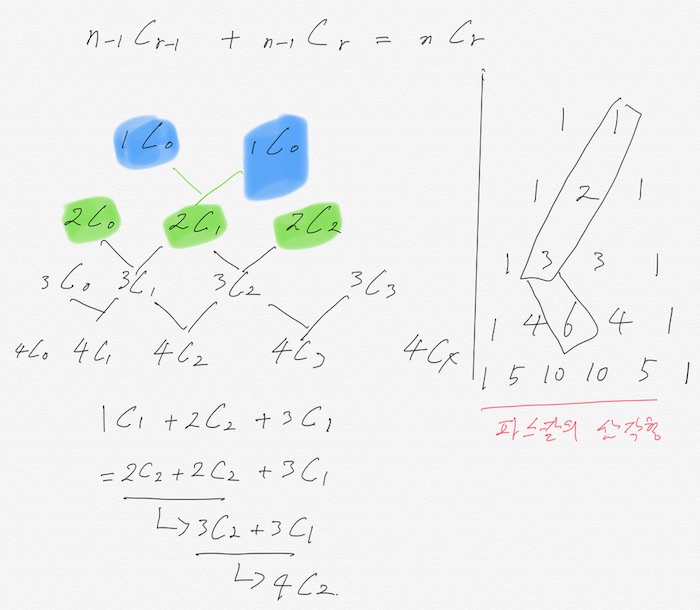 n-1Cr-1 + n-1Cr = nCr
1C0 1C0
2C0 2C1 2C2
3C0 3C1 3C2 3C3
4C0 4C1 4C2 4C3 4C4
1C1 + 2C2 + 3C1
= 2C2 + 2C2 + 3C1
↳ 3C2 + 3C1
↳ 4C2.
1 1
1 2 1
1 3 3 1
1 4 6 4 1
1 5 10 10 5 1
파스칼의 삼각형